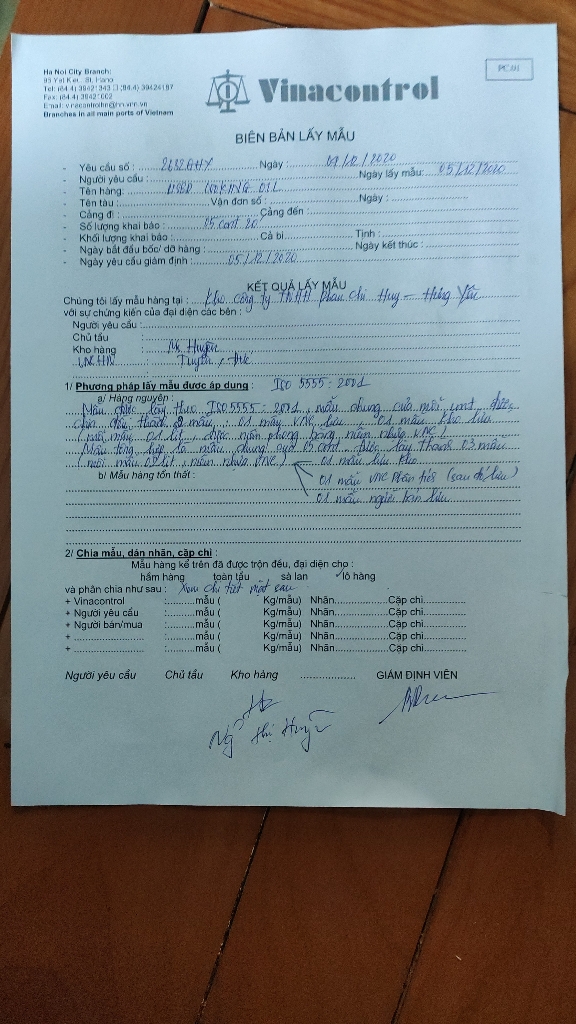 Ha Noi City Branch:
Branches in all main ports of Vietnam
PC/01
Vinacontrol
BIÊN BẢN LẤY MẪU
- Yêu cầu số : Ngày : /2020
- Người yêu cầu : Ngày lấy mẫu: 05/12/2020
- Tên hàng: USED COOKING OIL
- Tên tàu : Vận đơn số : Ngày :
- Cảng đi : Cảng đến :
- Số lượng khai báo : 05 cont 20'
- Khối lượng khai báo : Cả bì Tịnh :
- Ngày bắt đầu bốc/ dỡ hàng : Ngày kết thúc :
- Ngày yêu cầu giám định : 05/12/2020
KẾT QUẢ LẤY MẪU
Chúng tôi lấy mẫu hàng tại : Kho công ty TNHH Phan Chi Huy - Hưng Yên
với sự chứng kiến của đại diện các bên :
Người yêu cầu :
Chủ tầu :
Kho hàng : Ms. Huyền
: Tuyên
1/ Phương pháp lấy mẫu được áp dụng : ISO 5555 : 2001
a/ Hàng nguyên :
Mẫu được lấy theo ISO 5555 : 2001, mẫu chung của mỗi cont được
chia đều thành 2 mẫu : 01 mẫu VNC lưu 01 mẫu kho lưu
(mỗi mẫu 01 lít, được niêm phong bằng niêm nhựa VNC)
Mẫu tổng hợp là mẫu chung của 05 cont, được lấy thành 03 mẫu
(mỗi mẫu lít, niêm nhựa VNC) 01 mẫu lưu kho
b/ Mẫu hàng tổn thất : 01 mẫu VNC phân tích (sau đó lưu)
01 mẫu người bán lưu
2/ Chia mẫu, dán nhãn, cặp chì :
Mẫu hàng kể trên đã được trộn đều, đại diện cho :
hầm hàng toàn tầu sà lan ✓lô hàng
và phân chia như sau : Xem chi tiết mặt sau
+ Vinacontrol :..........mẫu ( Kg/mẫu) Nhãn..................Cặp chì...............
+ Người yêu cầu :..........mẫu ( Kg/mẫu) Nhãn..................Cặp chì...............
+ Người bán/mua :..........mẫu ( Kg/mẫu) Nhãn..................Cặp chì...............
+ ........................ :..........mẫu ( Kg/mẫu) Nhãn..................Cặp chì...............
+ ........................ :..........mẫu ( Kg/mẫu) Nhãn..................Cặp chì...............
Người yêu cầu Chủ tầu Kho hàng .................. GIÁM ĐỊNH VIÊN
Ngô Thị Huyền